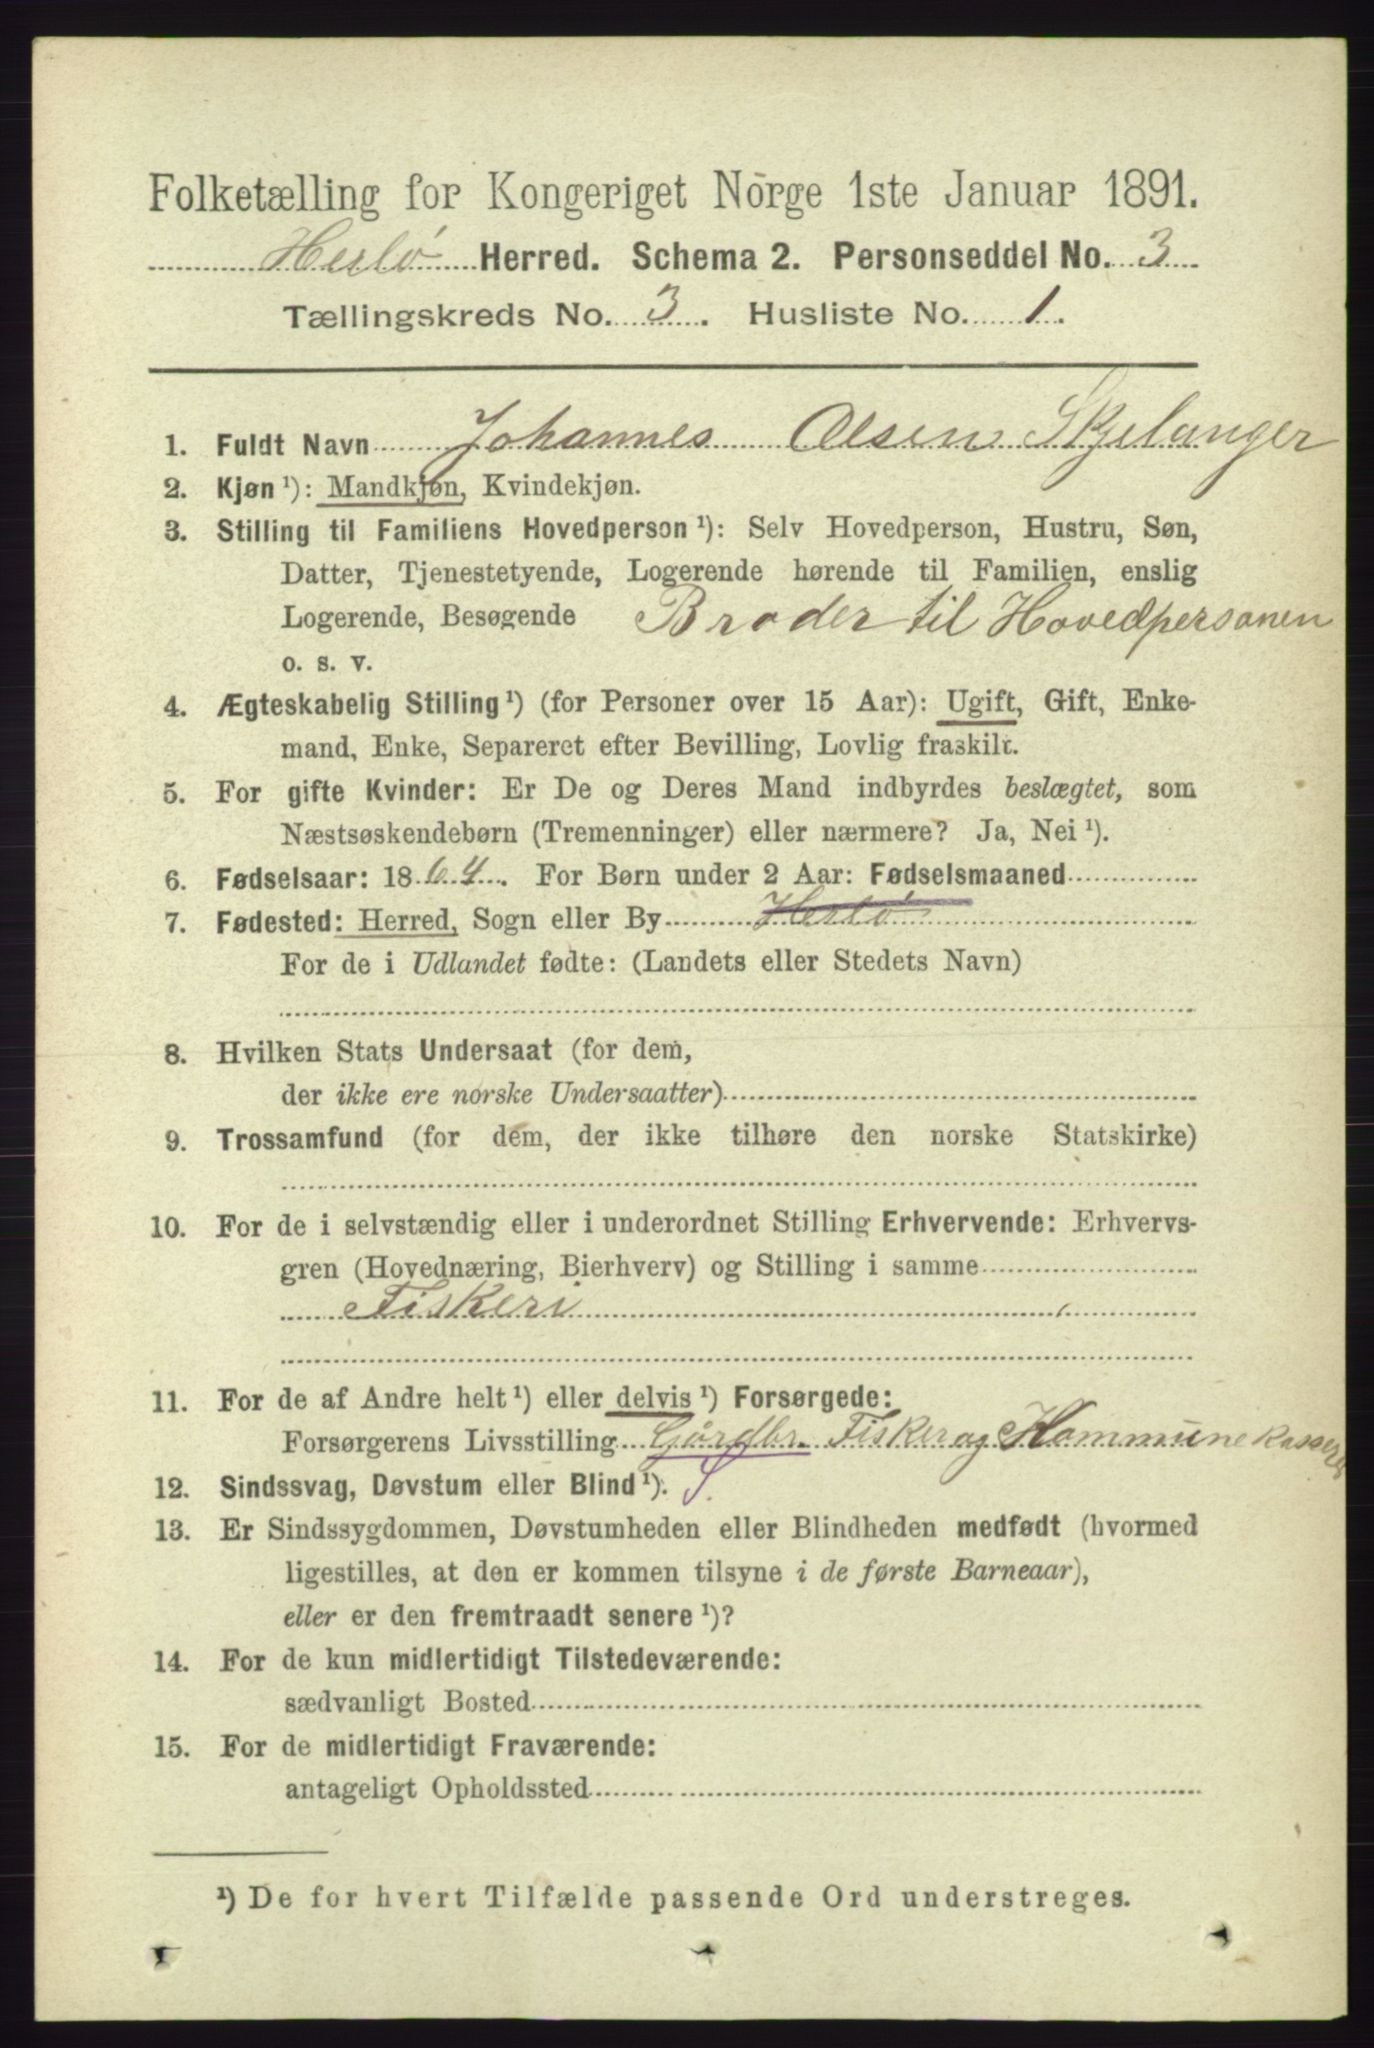 Folketælling for Kongeriget Norge 1ste Januar 1891.
Herlø Herred. Schema 2. Personseddel No. 3
Tællingskreds No. 3. Husliste No. 1.
1. Fuldt Navn Johannes Olsen Skjelanger
2. Kjøn¹): Mandkjøn, Kvindekjøn.
3. Stilling til Familiens Hovedperson¹): Selv Hovedperson, Hustru, Søn,
Datter, Tjenestetyende, Logerende hørende til Familien, enslig
Logerende, Besøgende Broder til Hovedpersonen
o. s. v.
4. Ægteskabelig Stilling¹) (for Personer over 15 Aar): Ugift, Gift, Enke-
mand, Enke, Separeret efter Bevilling, Lovlig fraskilt.
5. For gifte Kvinder: Er De og Deres Mand indbyrdes beslægtet, som
Næstsøskendebørn (Tremenninger) eller nærmere? Ja, Nei¹).
6. Fødselsaar: 1864. For Børn under 2 Aar: Fødselsmaaned
7. Fødested: Herred, Sogn eller By Herlø
For de i Udlandet fødte: (Landets eller Stedets Navn)
8. Hvilken Stats Undersaat (for dem,
der ikke ere norske Undersaatter)
9. Trossamfund (for dem, der ikke tilhøre den norske Statskirke)
10. For de i selvstændig eller i underordnet Stilling Erhvervende: Erhvervs-
gren (Hovednæring, Bierhverv) og Stilling i samme
Fiskeri
11. For de af Andre helt¹) eller delvis¹) Forsørgede:
Forsørgerens Livsstilling Gårdbr. Fisker og Kommunekasserer
12. Sindssvag, Døvstum eller Blind¹). S.
13. Er Sindssygdommen, Døvstumheden eller Blindheden medfødt (hvormed
ligestilles, at den er kommen tilsyne i de første Barneaar),
eller er den fremtraadt senere¹)?
14. For de kun midlertidigt Tilstedeværende:
sædvanligt Bosted
15. For de midlertidigt Fraværende:
antageligt Opholdssted
¹) De for hvert Tilfælde passende Ord understreges.